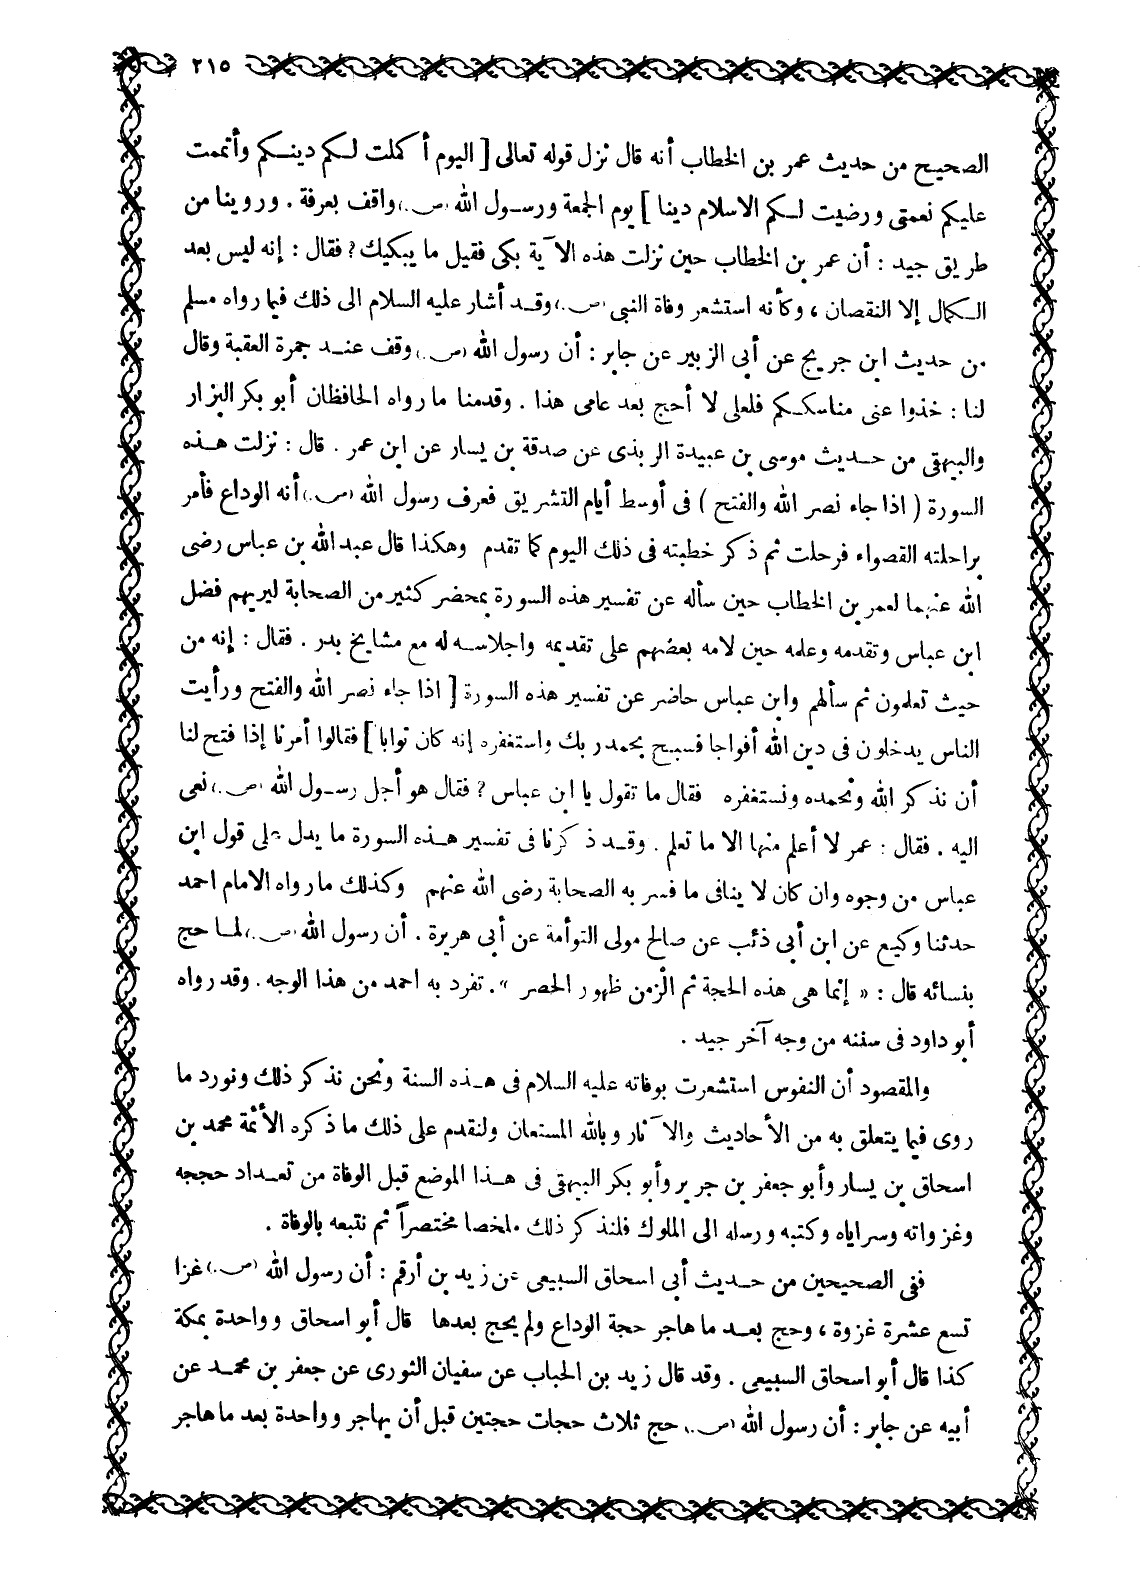 ٢١٥
الصحيح من حديث عمر بن الخطاب أنه قال نزل قوله تعالى [ اليوم أكملت لكم دينكم وأتممت
عليكم نعمتى ورضيت لكم الاسلام دينا ] يوم الجمعة ورسول الله (ص) واقف بعرفة . وروينا من
طريق جيد : أن عمر بن الخطاب حين نزلت هذه الآية بكى فقيل ما يبكيك ? فقال : إنه ليس بعد
الكمال إلا النقصان ، وكأنه استشعر وفاة النبى (ص) وقد أشار عليه السلام الى ذلك فيما رواه مسلم
من حديث ابن جريج عن أبى الزبير عن جابر : أن رسول الله (ص) وقف عند جمرة العقبة وقال
لنا : خذوا عنى مناسككم فلعلى لا أحج بعد عامى هذا . وقدمنا ما رواه الحافظان أبو بكر البزار
والبيهقى من حديث موسى بن عبيدة الربذى عن صدقة بن يسار عن ابن عمر . قال : نزلت هذه
السورة ( اذا جاء نصر الله والفتح ) فى أوسط أيام التشريق فعرف رسول الله (ص) أنه الوداع فأمر
براحلته القصواء فرحلت ثم ذكر خطبته فى ذلك اليوم كما تقدم وهكذا قال عبد الله بن عباس رضى
الله عنهما لعمر بن الخطاب حين سأله عن تفسير هذه السورة بمحضر كثير من الصحابة ليريهم فضل
ابن عباس وتقدمه وعلمه حين لامه بعضهم على تقديمه واجلاسه له مع مشايخ بدر . فقال : إنه من
حيث تعلمون ثم سألهم وابن عباس حاضر عن تفسير هذه السورة [ اذا جاء نصر الله والفتح ورأيت
الناس يدخلون فى دين الله أفواجا فسبح بحمد ربك واستغفره إنه كان توابا ] فقالوا أمرنا إذا فتح لنا
أن نذكر الله ونحمده ونستغفره فقال ما تقول يا ابن عباس ? فقال هو أجل رسول الله (ص) نعى
اليه . فقال : عمر لا أعلم منها الا ما تعلم . وقد ذكرنا فى تفسير هذه السورة ما يدل على قول ابن
عباس من وجوه وان كان لا ينافى ما فسر به الصحابة رضى الله عنهم وكذلك ما رواه الامام احمد
حدثنا وكيع عن ابن أبى ذئب عن صالح مولى التوأمة عن أبى هريرة . أن رسول الله (ص) لما حج
بنسائه قال : « إنما هى هذه الحجة ثم الْزمن ظهور الحصر » . تفرد به احمد من هذا الوجه . وقد رواه
أبو داود فى سننه من وجه آخر جيد .
والمقصود أن النفوس استشعرت بوفاته عليه السلام فى هذه السنة ونحن نذكر ذلك ونورد ما
روى فيما يتعلق به من الأحاديث والآثار وبالله المستعان ولنقدم على ذلك ما ذكره الأئمة محمد بن
اسحاق بن يسار وأبو جعفر بن جرير وأبو بكر البيهقى فى هذا الموضع قبل الوفاة من تعداد حججه
وغزواته وسراياه وكتبه ورسله الى الملوك فلنذكر ذلك ملخصا مختصراً ثم نتبعه بالوفاة .
ففى الصحيحين من حديث أبى اسحاق السبيعى عن زيد بن أرقم : أن رسول الله (ص) غزا
تسع عشرة غزوة ، وحج بعد ما هاجر حجة الوداع ولم يحج بعدها قال أبو اسحاق وواحدة بمكة
كذا قال أبو اسحاق السبيعى . وقد قال زيد بن الحباب عن سفيان الثورى عن جعفر بن محمد عن
أبيه عن جابر : أن رسول الله (ص) حج ثلاث حجات حجتين قبل أن يهاجر وواحدة بعد ما هاجر